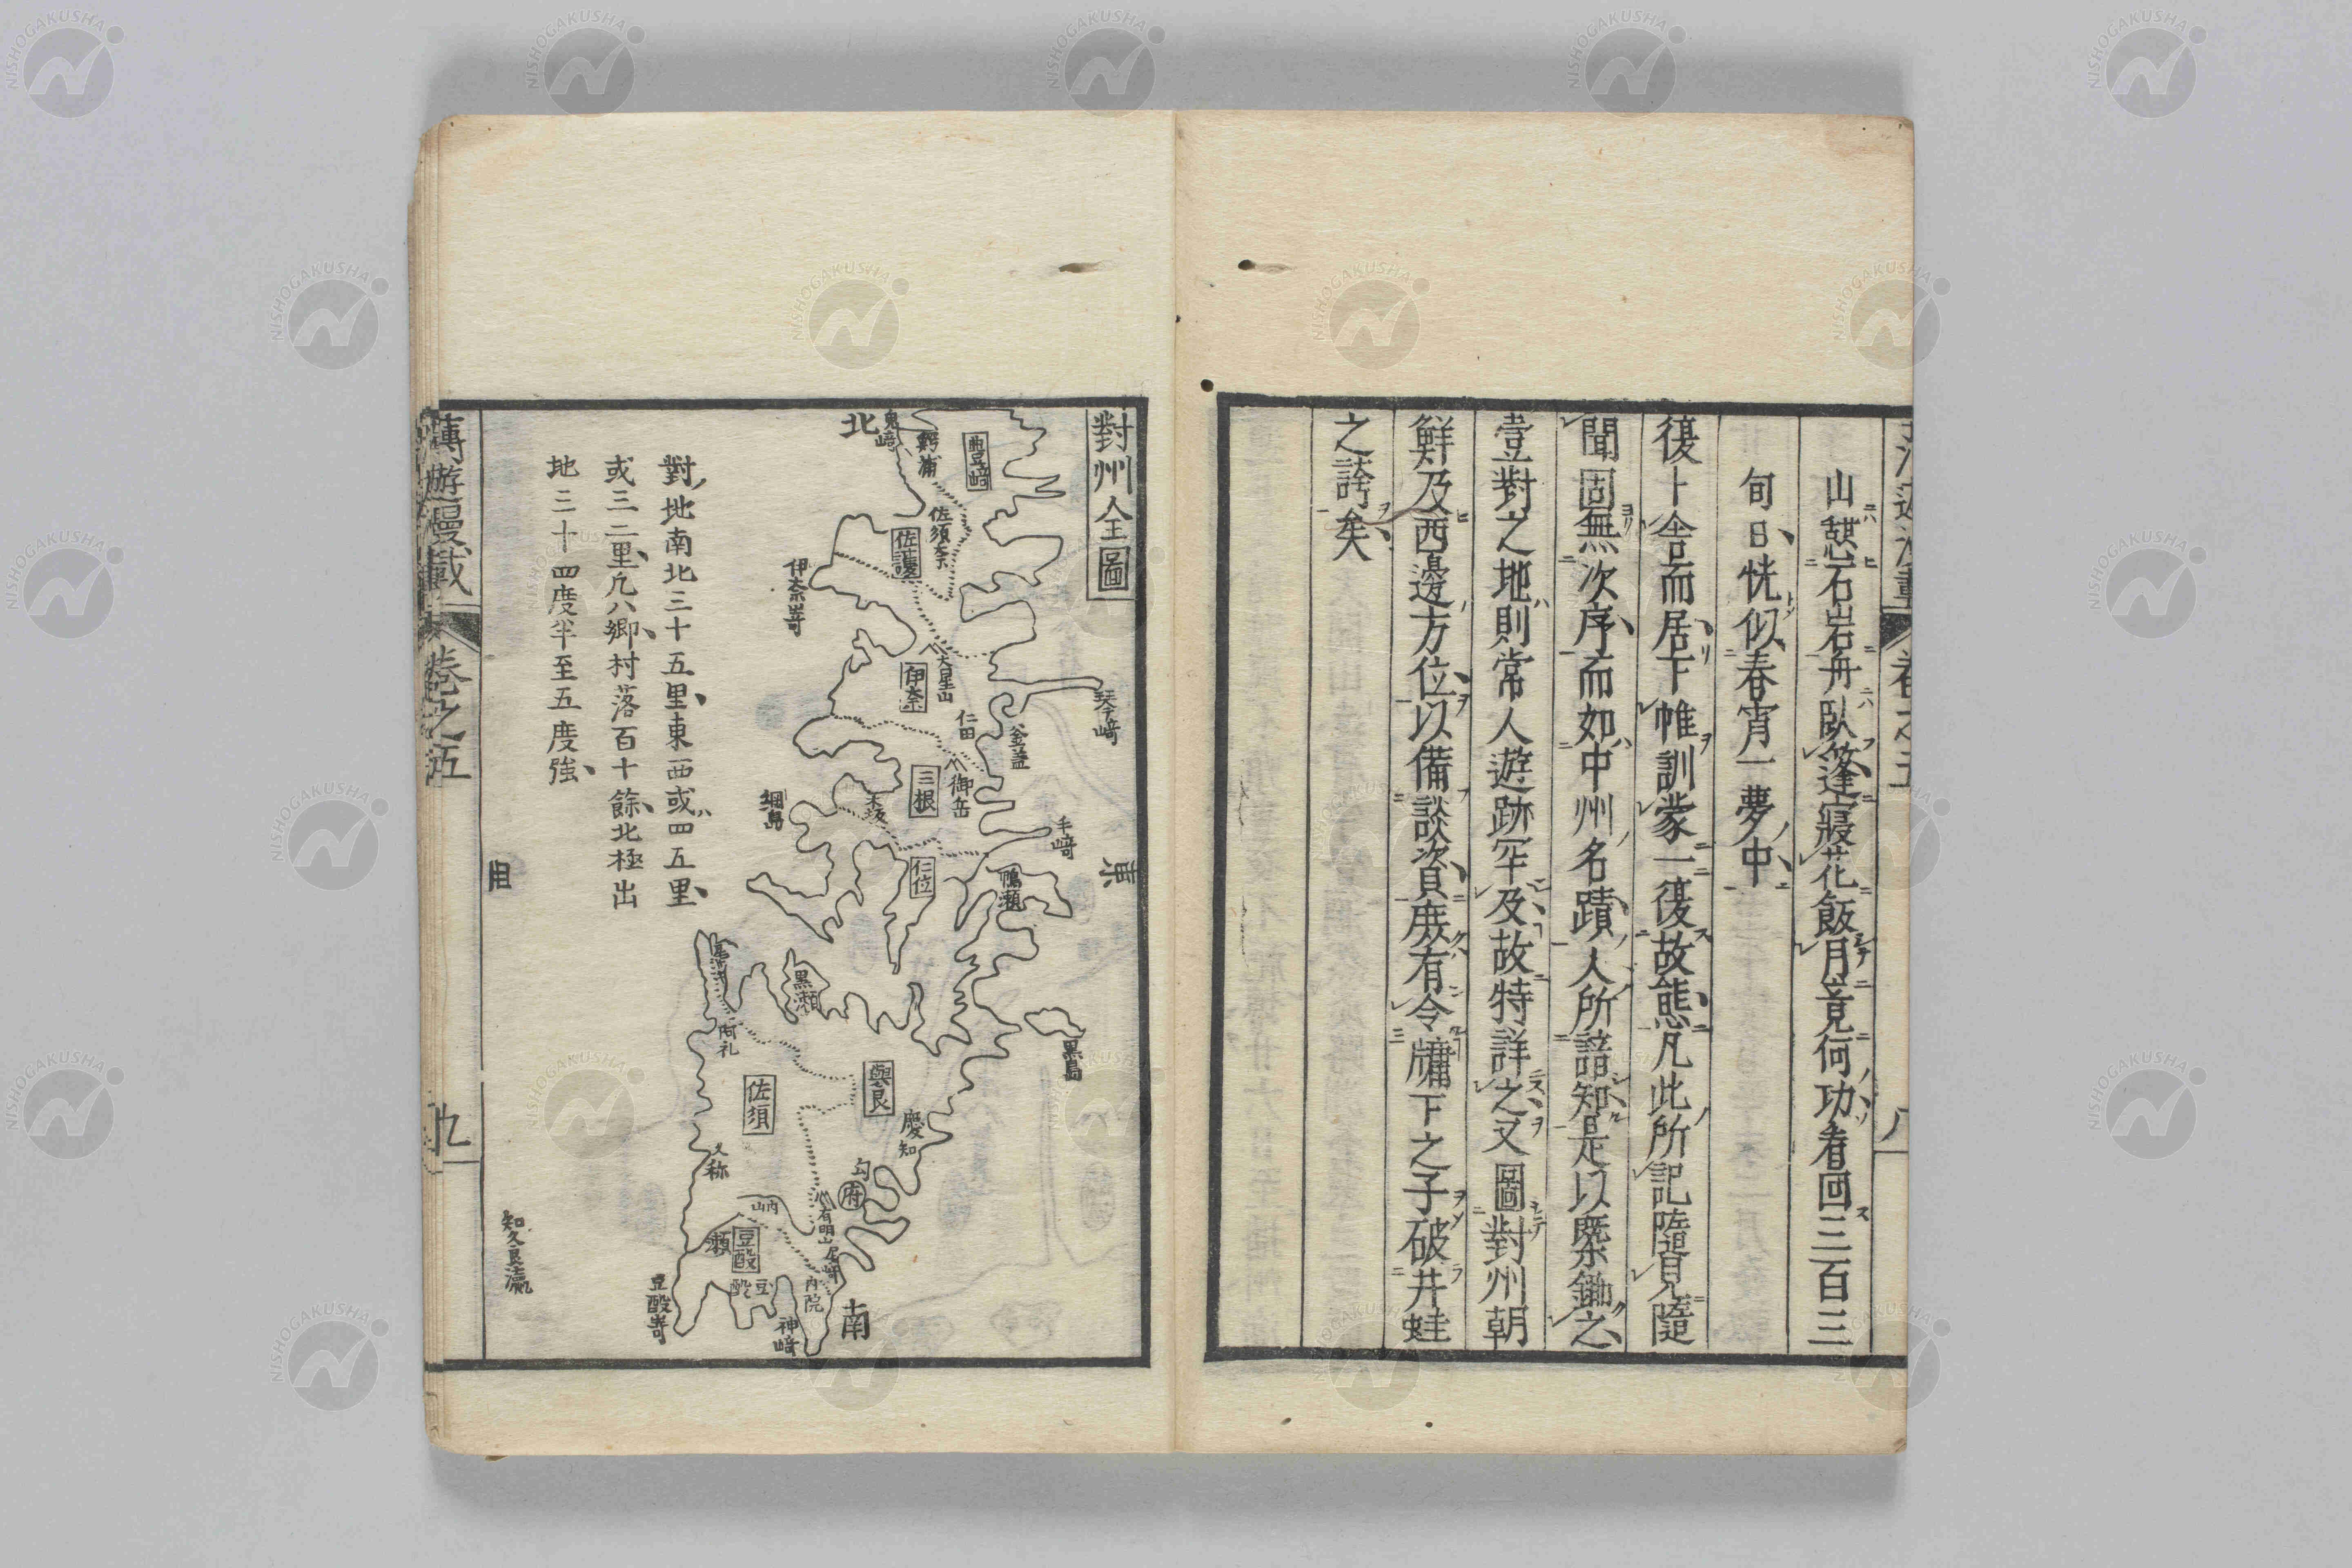 山憇石岩舟臥篷寢花飯月竟何功看回三百三
旬日恍似春宵一夢中
復卜舍而居下帷訓蒙一復故態凡此所記隨見隨
聞固無次序而如中州名蹟人所諳知是以槩鋤之
壹對之地則常人遊跡罕及故特詳之又圖對州朝
鮮及西邊方位以備談資庶有令牖下之子破井蛙
之誇矣
對州全圖
東
北
南
酉
豊﨑
鬼﨑
鰐浦
佐須奈
佐護
伊奈嵜
大星山
伊奈
琴﨑
仁田
釜蓋
御岳
三根
綱島
木坂
手﨑
仁位
鴨瀬
黒瀬
黒島
阿礼
與良
佐須
慶知
久称
府
有明山
内山
瀬
豆酘
尾﨑
内院
豆酘
豆酘嵜
神﨑
知久良瀛
對地南北三十五里東西或四五里
或三二里凡八鄉村落百十餘北極出
地三十四度半至五度強
漫遊漫載
巻之五
九
巻之五
八
NISHOGAKUSHA